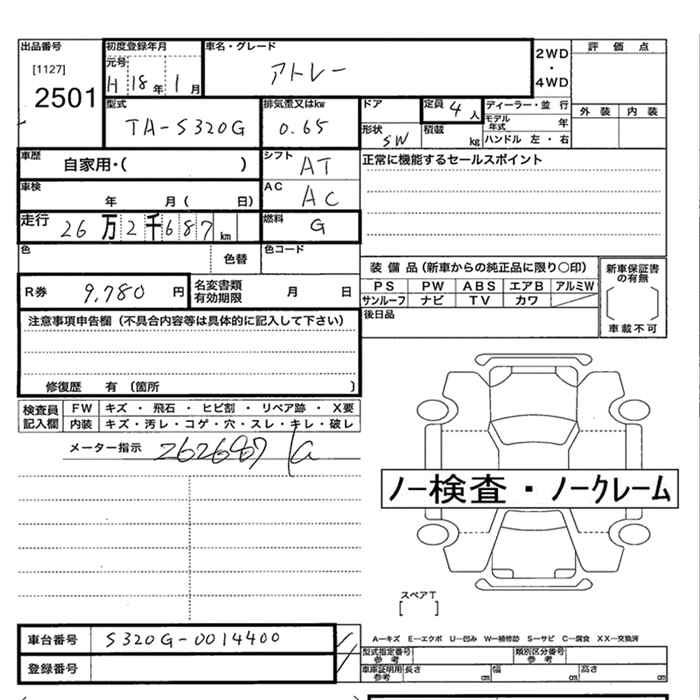 出品番号
[1127]
2501
初度登録年月
元号
H 18年 1月
車名・グレード
アトレー
2WD
・
4WD
評価点
外装 内装
型式
TA-S320G
排気歪又はkw
0.65
ドア
形状
SW
定員 4人
積載 kg
ディーラー・並行
モデル年式 年
ハンドル 左・右
車歴
自家用・( )
シフト
AT
正常に機能するセールスポイント
車検
年 月( 日)
AC
AC
走行
26万2千687km
燃料
G
色
色替
色コード
装備品(新車からの純正品に限り○印)
PS PW ABS エアB アルミW
サンルーフ ナビ TV カワ
新車保証書の有無
車載不可
後日品
R券 9,780円
名変書類有効期限 月 日
注意事項申告欄(不具合内容等は具体的に記入して下さい)
修復歴 有(箇所 )
検査員記入欄
FW キズ・飛石・ヒビ割・リペア跡・X要
内装 キズ・汚レ・コゲ・穴・スレ・キレ・破レ
メーター指示 262687
ノー検査・ノークレーム
スペアT
[ ]
車台番号 S320G-0014400
登録番号
A−キズ E−エクボ U−凹み W−補修跡 S−サビ C−腐食 XX−交換済
型式指定番号 参考
類別区分番号 参考
車庫証明用 参考 長さ cm 幅 cm 高さ cm